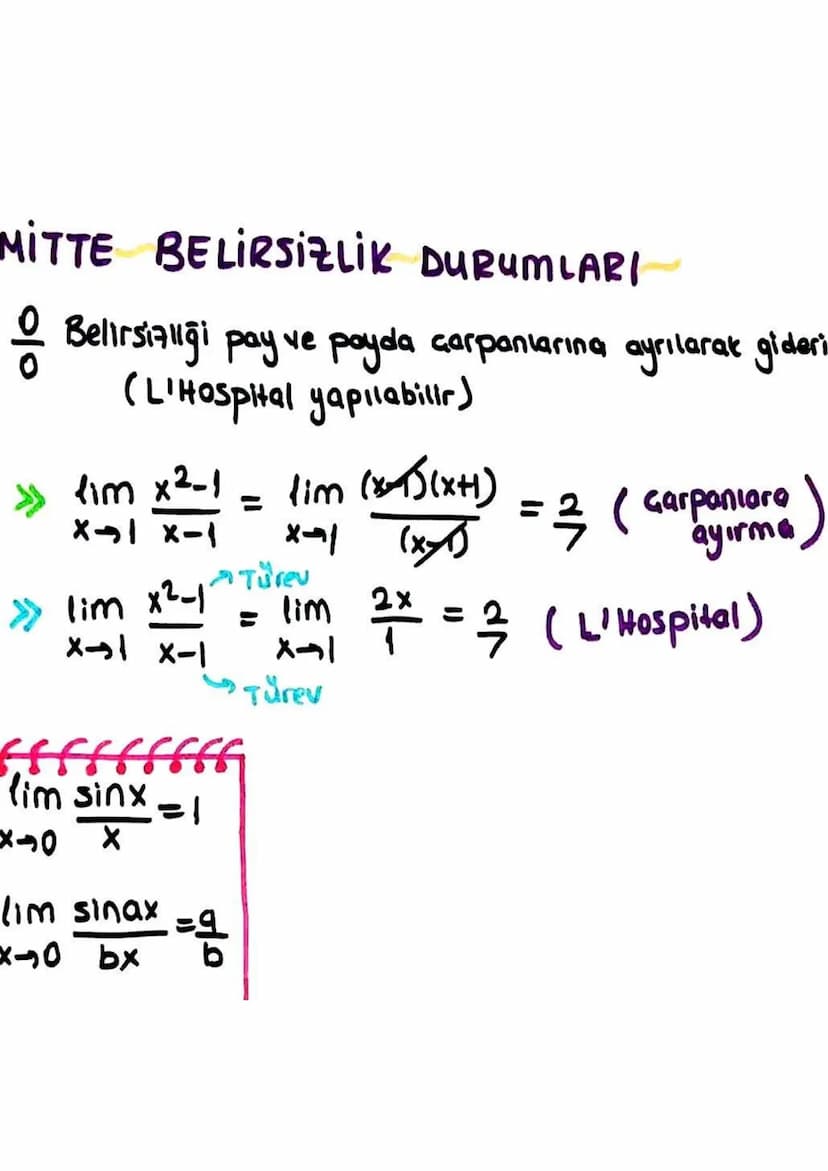 MİTTE BELİRSİZLİK DURUMLARI
0/0 Belirsizliği pay ve payda çarpanlarına ayrılarak gideri
(L'Hospital yapılabilir)
>> lim x→1 x²-1/x-1 = lim x→1 (x-1)(x+1)/(x-1) = 2/7 (Çarpanlara ayırma)
>> lim x→1 x²-1/x-1 = lim x→1 2x/1 = 2/7 (L'Hospital)
→ Türev
→ Türev
lim x→0 sinx/x = 1
lim x→0 sinax/bx = a/b